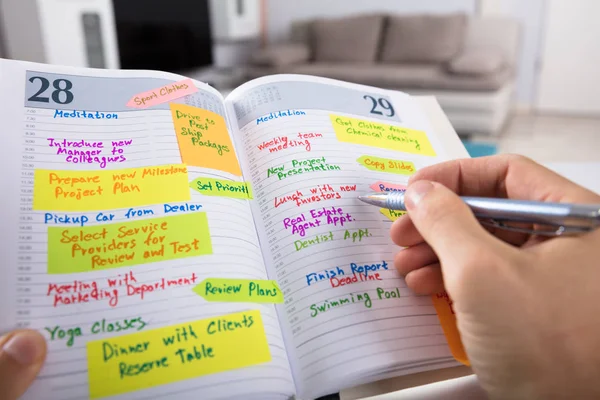 28
Meditation
Sport Clothes
Introduce new
Manager to
collagues
Drive to
Post
Ship
Packages
Prepare new Milestone
Project Plan
Set Priorities
Pickup Car from Dealer
Select Service
Providers for
Review and Test
Meeting with
Marketing Department
Review Plans
Yoga Classes
Dinner with Clients
Reserve Table
29
Meditation
Get Clothes from
Chemical Cleaning
Weekly team
meeting
New Project
Presentation
Copy Slides
Lunch with new
Investors
Real Estate
Agent Appt.
Dentist Appt.
Finish Report
Deadline
Swimming Pool